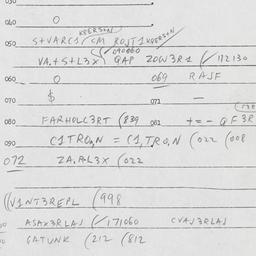 030
040 0
KEERSON
050 S+VARC1/CM ROJT1 KEERSON
(090060
VA.+S+L3X) GAP ZOW3R1 (✓112130
060 0 069 RAJF
070 $ 071 —
080 FARHOLC3RT (839 081 +=- GF3R
090 C1TRO,N = C1,TRO,N (022 (008
072 ZA.AL3X (022
((V1NT3REPL (998
ASAX3RLAJ (✓171060 CVAJ3RLAJ
GATUNK (212 (812